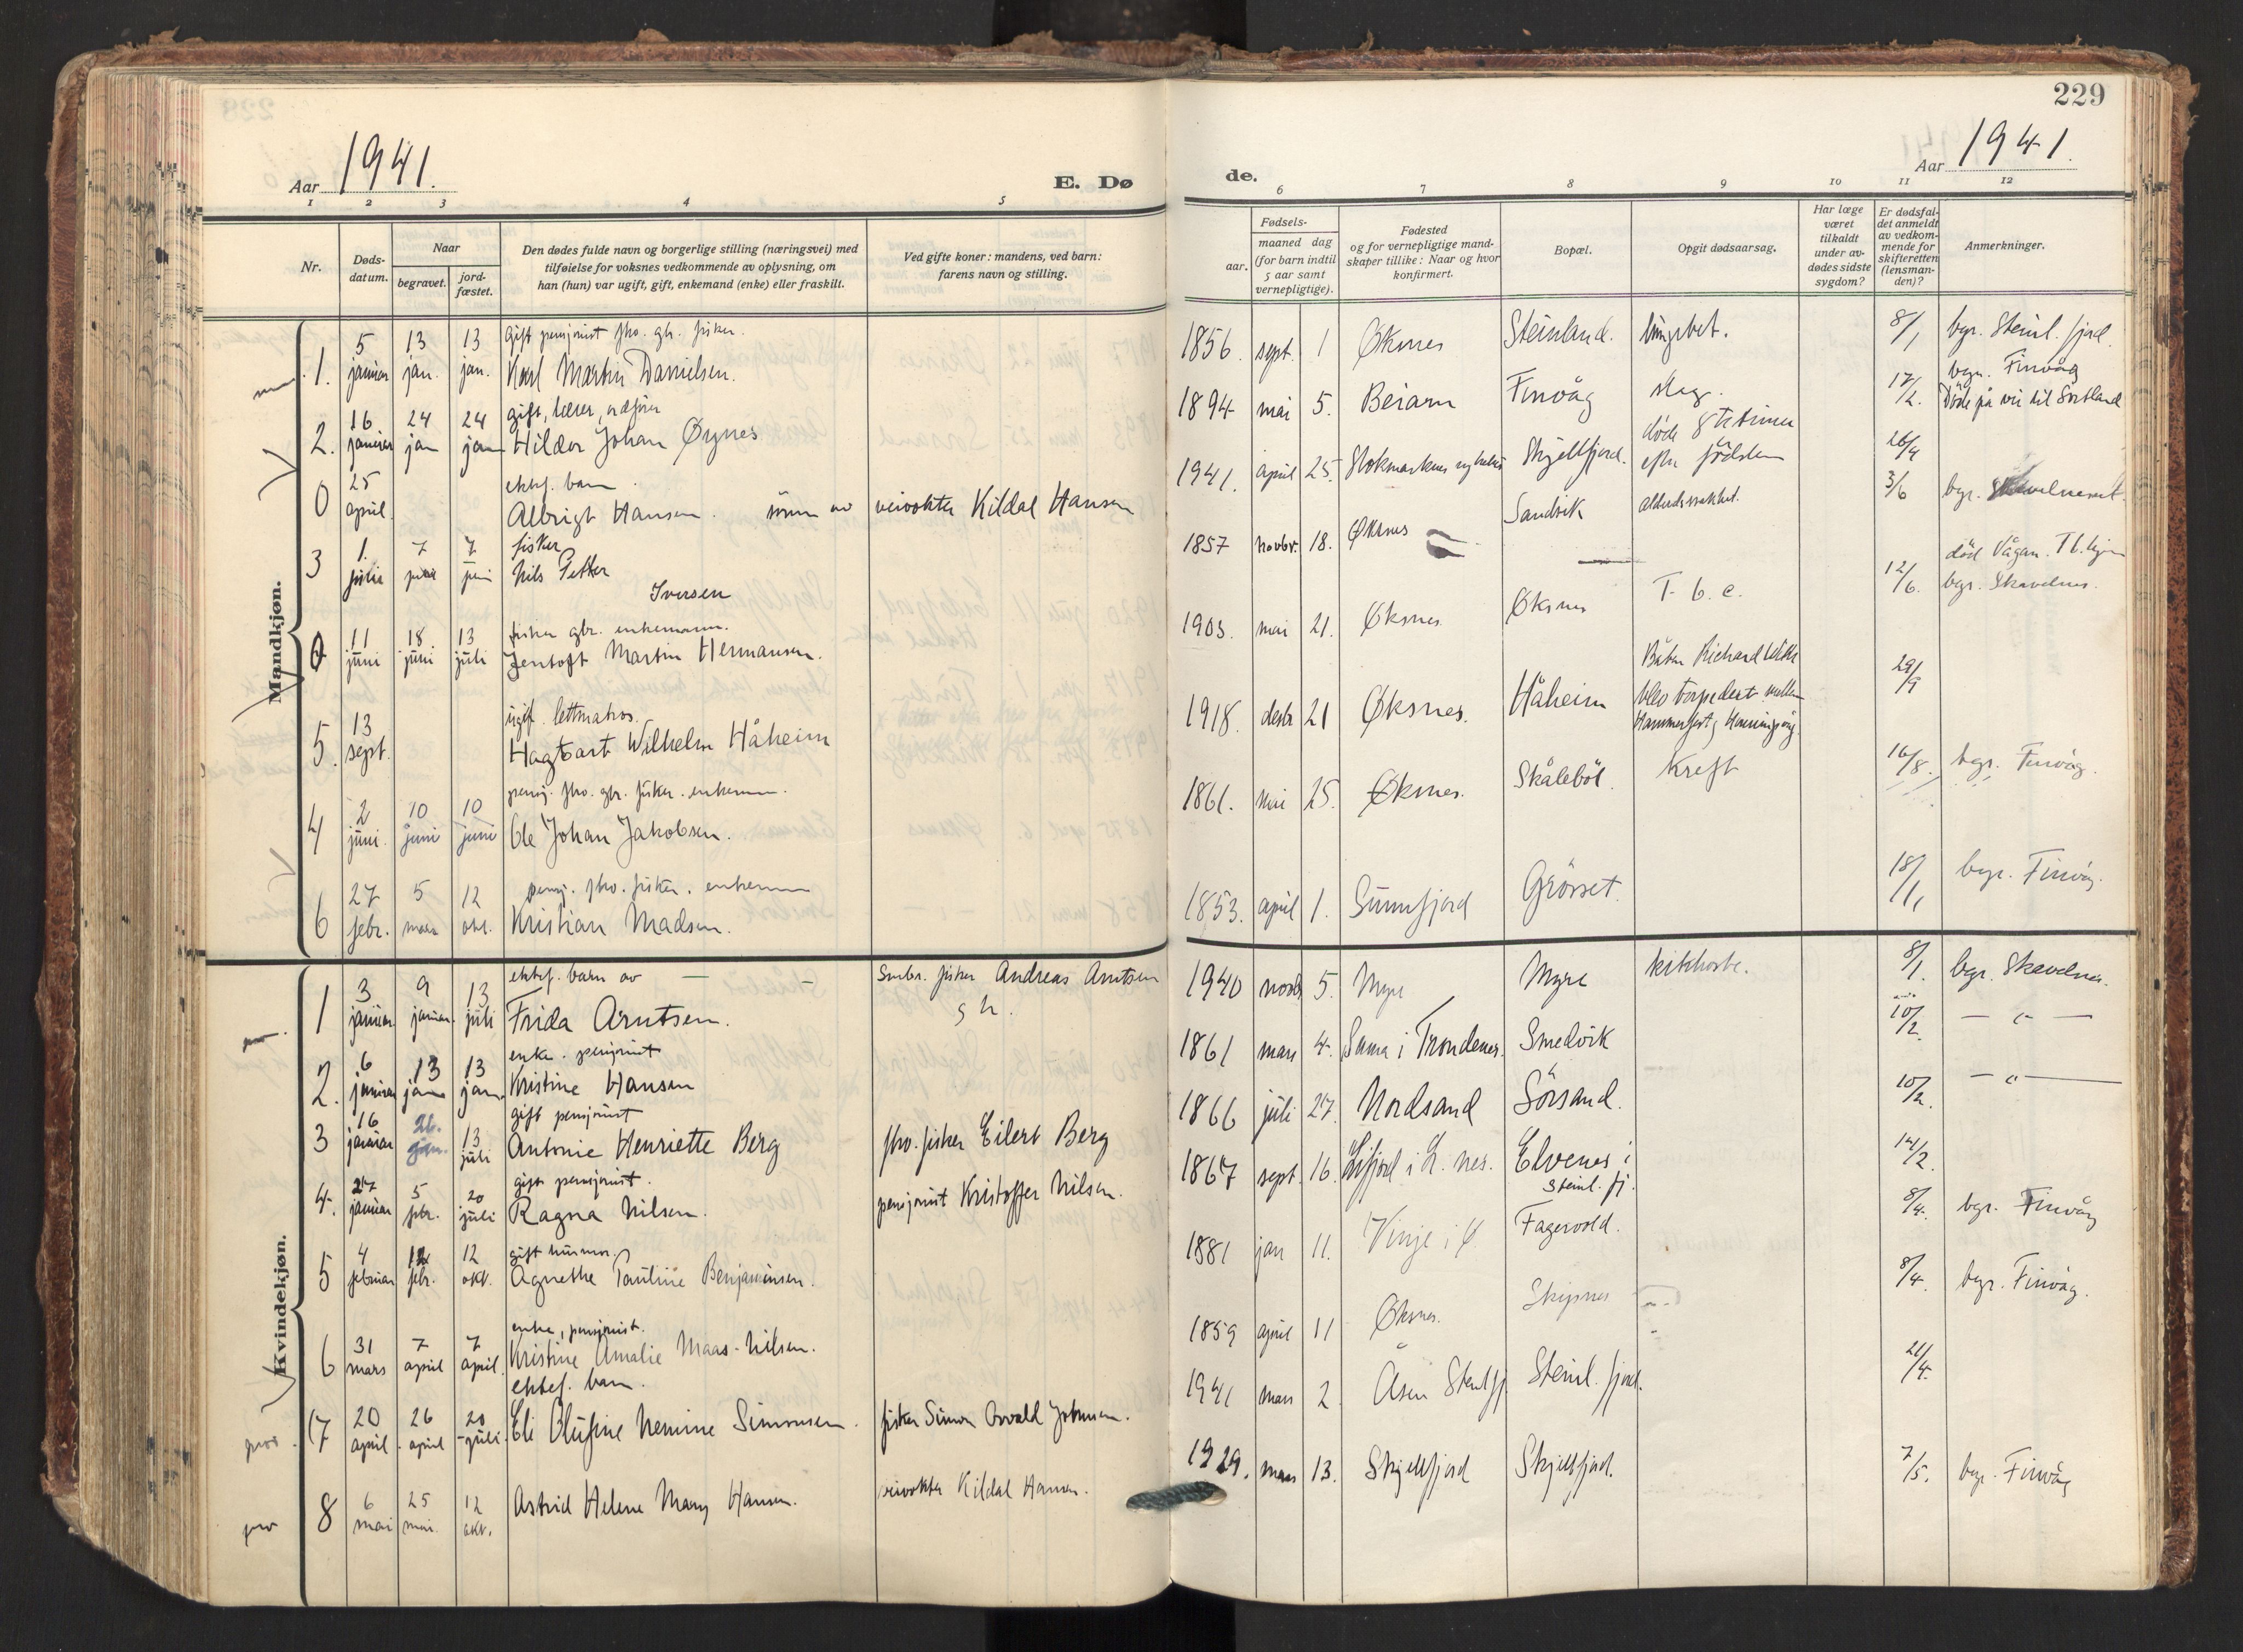 229
Aar 1941.
E. Dø
de.
Aar 1941.
1 2 3 4 5 6 7 8 9 10 11 12
Nr.
Døds-
datum.
Naar
begravet.
jord-
fæstet.
Den dødes fulde navn og borgerlige stilling (næringsvei) med
tilføielse for voksnes vedkommende av oplysning, om
han (hun) var ugift, gift, enkemand (enke) eller fraskilt.
Ved gifte koner: mandens, ved barn:
farens navn og stilling.
Fødsels-
aar.
maaned dag
(for barn indtil
5 aar samt
vernepligtige).
Fødested
og for vernepligtige mand-
skaper tillike: Naar og hvor
konfirmert.
Bopæl.
Opgit dødsaarsag.
Har læge
været
tilkaldt
under av-
dødes sidste
sygdom?
Er dødsfal-
det anmeldt
av vedkom-
mende for
skifteretten
(lensman-
den)?
Anmerkninger.
Mandkjøn.
gift pensjonist fhv. gbr. fisker.
1. 5 januar 13 jan. 13 jan. Karl Martin Danielsen. 1856. sept. 1 Øksnes Steinland. lungebet. 8/1 bgr. Steinl. fjord.
gift, lærer, ordfører
2. 16 januar 24 jan 24 jan Hildor Johan Øynes 1894 mai 5. Beiarn Finvåg slag. 17/2. bgr. Finvåg
Døde på vei til Sortland
ektef. barn
0 25 april Albrigt Hansen. sönn av veivokter Kildal Hansen 1941. april 25. Stokmarknes sykehus Skjellfjord. døde 8 timer
efter födslen 26/4
fisker
3 1. juni 7 juni 7 juni Nils Petter
Iversen 1857 novbr. 18. Øksnes Sandvik alderdsvakhet. 3/6 bgr. Skavelneset.
fisker gbr. enkemann.
0 11 juni 18 juni 13 juli Jentoft Martin Hermansen. 1903. mai 21. Øksnes Øksnes T. b. c. 12/6. död Vågan. Tb. hjem
bgr. Skavelnes.
ugift. lettmatros.
5. 13 sept. Hagbart Wilhelm Håheim 1918. desbr 21 Øksnes. Håheim Båten Richard With
blev torpedert mellem
Hammerfest og Honningsvåg 29/9
pensj. fhv. gbr. fisker. enkem.
4 2 juni. 10 juni 10 juni Ole Johan Jakobsen. 1861. mai 25. Øksnes. Skåleböl. Kreft 16/8. bgr. Finvåg.
pensj. fhv. fisker. enkem
6 27 febr. 5 mars 12 okt. Kristian Madsen. 1853. april 1. Sunnfjord Grösset. 18/11 bgr. Finvåg.
Kvindekjøn.
ektef. barn av —
1 3 januar 9 januar 13 juli Frida Arntsen. Smbr. fisker Andreas Arntsen
1940 novb 5. Myre Myre kikhoste. 8/1. bgr. Skavelnes.
enke. pensjonist
2. 6 januar 13 jan 13 jan. Kristine Hansen 1861 mars 4. Sama i Trondenes. Smedvik 10/2. — " —
gift pensjonist
3 16 januar 26. jan. 13 juli Antonie Henriette Berg fhv. fisker Eilert Berg 1866 juli 27. Nordsand Sörsand. 10/2. — " —
gift pensjonist.
4. 27 januar 5 febr. 20 juli Ragna Nilsen. pensjonist Kristoffer Nilsen. 1867 sept. 16. Elvenes i
Steinl. fj. 14/2.
gift husmor.
5 4 februar 12 febr. 12 okt. Agnethe Pauline Benjaminsen. 1881 jan 11. Vinje i Fagervold. 8/4. bgr. Finvåg
enke, pensjonist.
6 31 mars 7 april 7 april. Kristine Amalie Maas-Nilsen. 1859 april 11 Øksnes. Skipnes 8/4. bgr. Finvåg.
ektef. barn.
7 20 april 26 april 20 juli. Eli Olufine Nemine Simonsen. fisker Simon Osvald Johnsen. 1941 mars 2 Åsen Steinlfj. Steinl. fjord. 21/4.
8 6 mai 25 mai. 12 okt. Astrid Helene Mary Hansen. veivokter Kildal Hansen. 1929. mars 13. Skjellfjord Skjellfjord. 7/5. bgr. Finvåg